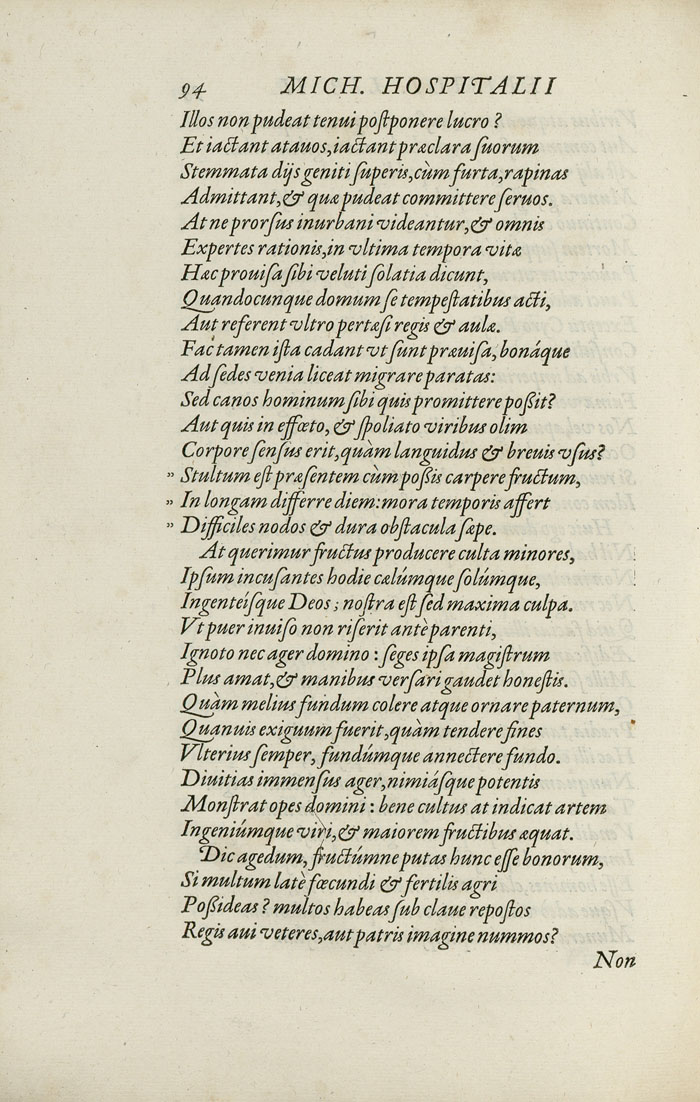 94 MICH. HOSPITALII
Illos non pudeat tenui poſtponere lucro ?
Et iactant atauos, iactant præclara ſuorum
Stemmata dijs geniti ſuperis, cùm furta, rapinas
Admittant, & quæ pudeat committere ſeruos.
At ne prorſus inurbani videantur, & omnis
Expertes rationis, in vltima tempora vitæ
Hæc prouiſa ſibi veluti ſolatia dicunt,
Quandocunque domum ſe tempeſtatibus acti,
Aut referent vltro pertæſi regis & aulæ.
Fac tamen iſta cadant vt ſunt præuiſa, bonáque
Ad ſedes venia liceat migrare paratas:
Sed canos hominum ſibi quis promittere poßit?
Aut quis in effœto, & ſpoliato viribus olim
Corpore ſenſus erit, quàm languidus & breuis vſus?
" Stultum eſt præſentem cùm poßis carpere fructum,
" In longam differre diem: mora temporis affert
" Difficiles nodos & dura obſtacula ſæpe.
At querimur fructus producere culta minores,
Ipſum incuſantes hodie cælúmque ſolúmque,
Ingenteíſque Deos ; noſtra eſt ſed maxima culpa.
Vt puer inuiſo non riſerit antè parenti,
Ignoto nec ager domino : ſeges ipſa magiſtrum
Plus amat, & manibus verſari gaudet honeſtis.
Quàm melius fundum colere atque ornare paternum,
Quanuis exiguum fuerit, quàm tendere fines
Vlterius ſemper, fundúmque annectere fundo.
Diuitias immenſus ager, nimiáſque potentis
Monſtrat opes domini : bene cultus at indicat artem
Ingeniúmque viri, & maiorem fructibus æquat.
Dic agedum, fructúmne putas hunc eſſe bonorum,
Si multum latè fœcundi & fertilis agri
Poßideas ? multos habeas ſub claue repoſtos
Regis aui veteres, aut patris imagine nummos?
Non